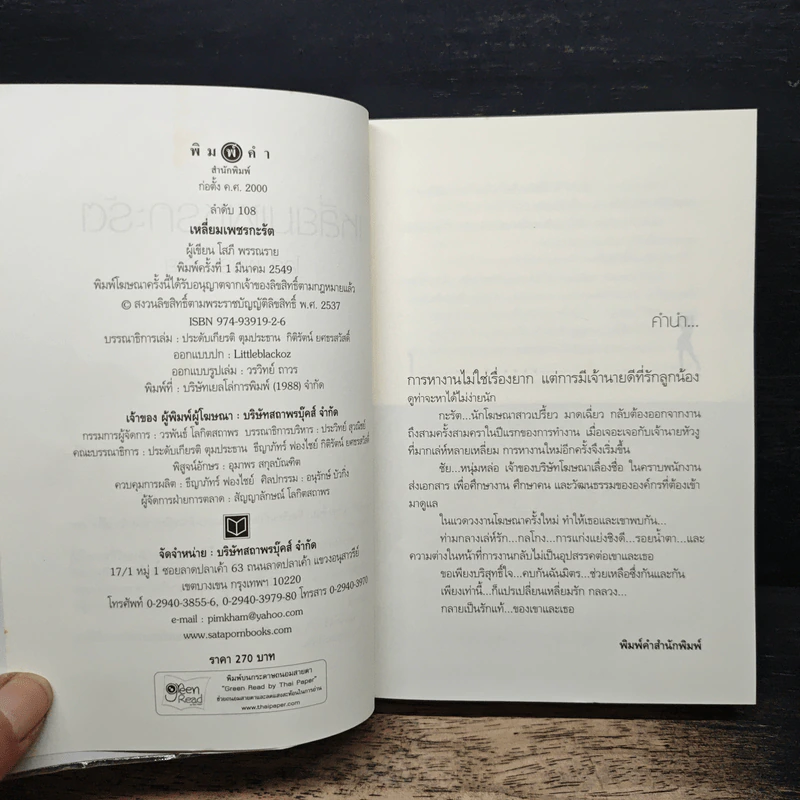 พิมพ์คำ
สำนักพิมพ์
ก่อตั้ง ค.ศ. 2000
ลำดับ 108
เหลี่ยมเพชรกะรัต
ผู้เขียน โสภี พรรณราย
พิมพ์ครั้งที่ 1 มีนาคม 2549
พิมพ์โฆษณาครั้งนี้ได้รับอนุญาตจากเจ้าของลิขสิทธิ์ตามกฎหมายแล้ว
© สงวนลิขสิทธิ์ตามพระราชบัญญัติลิขสิทธิ์ พ.ศ. 2537
ISBN 974-93919-2-6
บรรณาธิการเล่ม : ประดับเกียรติ ตุมประธาน กิติรัตน์ ยศธรสวัสดิ์
ออกแบบปก : Littleblackoz
ออกแบบรูปเล่ม : วรวิทย์ ถาวร
พิมพ์ที่ : บริษัทเยลโล่การพิมพ์ (1988) จำกัด
เจ้าของ ผู้พิมพ์ผู้โฆษณา : บริษัทสถาพรบุ๊คส์ จำกัด
กรรมการผู้จัดการ : วรพันธ์ โลกิตสถาพร บรรณาธิการบริหาร : ประวิทย์ สุวณิชย์
คณะบรรณาธิการ : ประดับเกียรติ ตุมประธาน ธีญาภัทร์ ฟองไชย์ กิติรัตน์ ยศธรสวัสดิ์
พิสูจน์อักษร : อุมาพร สกุลบัณฑิต
ควบคุมการผลิต : ธีญาภัทร์ ฟองไชย์ ศิลปกรรม : อนุรักษ์ บัวกิ่ง
ผู้จัดการฝ่ายการตลาด : สัญญาลักษณ์ โลกิตสถาพร
จัดจำหน่าย : บริษัทสถาพรบุ๊คส์ จำกัด
17/1 หมู่ 1 ซอยลาดปลาเค้า 63 ถนนลาดปลาเค้า แขวงอนุสาวรีย์
เขตบางเขน กรุงเทพฯ 10220
โทรศัพท์ 0-2940-3855-6, 0-2940-3979-80 โทรสาร 0-2940-3970
e-mail : pimkham@yahoo.com
www.satapornbooks.com
ราคา 270 บาท
green Read
พิมพ์บนกระดาษถนอมสายตา
"Green Read by Thai Paper"
ช่วยถนอมสายตาและลดแสงสะท้อนในการอ่าน
www.thaipaper.com
คำนำ...
การหางานไม่ใช่เรื่องยาก แต่การมีเจ้านายดีที่รักลูกน้อง
ดูท่าจะหาได้ไม่ง่ายนัก
กะรัต...นักโฆษณาสาวเปรี้ยว มาดเฉี่ยว กลับต้องออกจากงาน
ถึงสามครั้งสามคราในปีแรกของการทำงาน เมื่อเจอะเจอกับเจ้านายหัวงู
ที่มากเล่ห์หลายเหลี่ยม การหางานใหม่อีกครั้งจึงเริ่มขึ้น
ชัย...หนุ่มหล่อ เจ้าของบริษัทโฆษณาเลื่องชื่อ ในคราบพนักงาน
ส่งเอกสาร เพื่อศึกษางาน ศึกษาคน และวัฒนธรรมขององค์กรที่ต้องเข้า
มาดูแล
ในแวดวงงานโฆษณาครั้งใหม่ ทำให้เธอและเขาพบกัน...
ท่ามกลางเล่ห์รัก...กลโกง...การแก่งแย่งชิงดี...รอยน้ำตา...และ
ความต่างในหน้าที่การงานกลับไม่เป็นอุปสรรคต่อเขาและเธอ
ขอเพียงบริสุทธิ์ใจ...คบกันฉันมิตร...ช่วยเหลือซึ่งกันและกัน
เพียงเท่านี้...ก็แปรเปลี่ยนเหลี่ยมรัก กลลวง...
กลายเป็นรักแท้...ของเขาและเธอ
พิมพ์คำสำนักพิมพ์